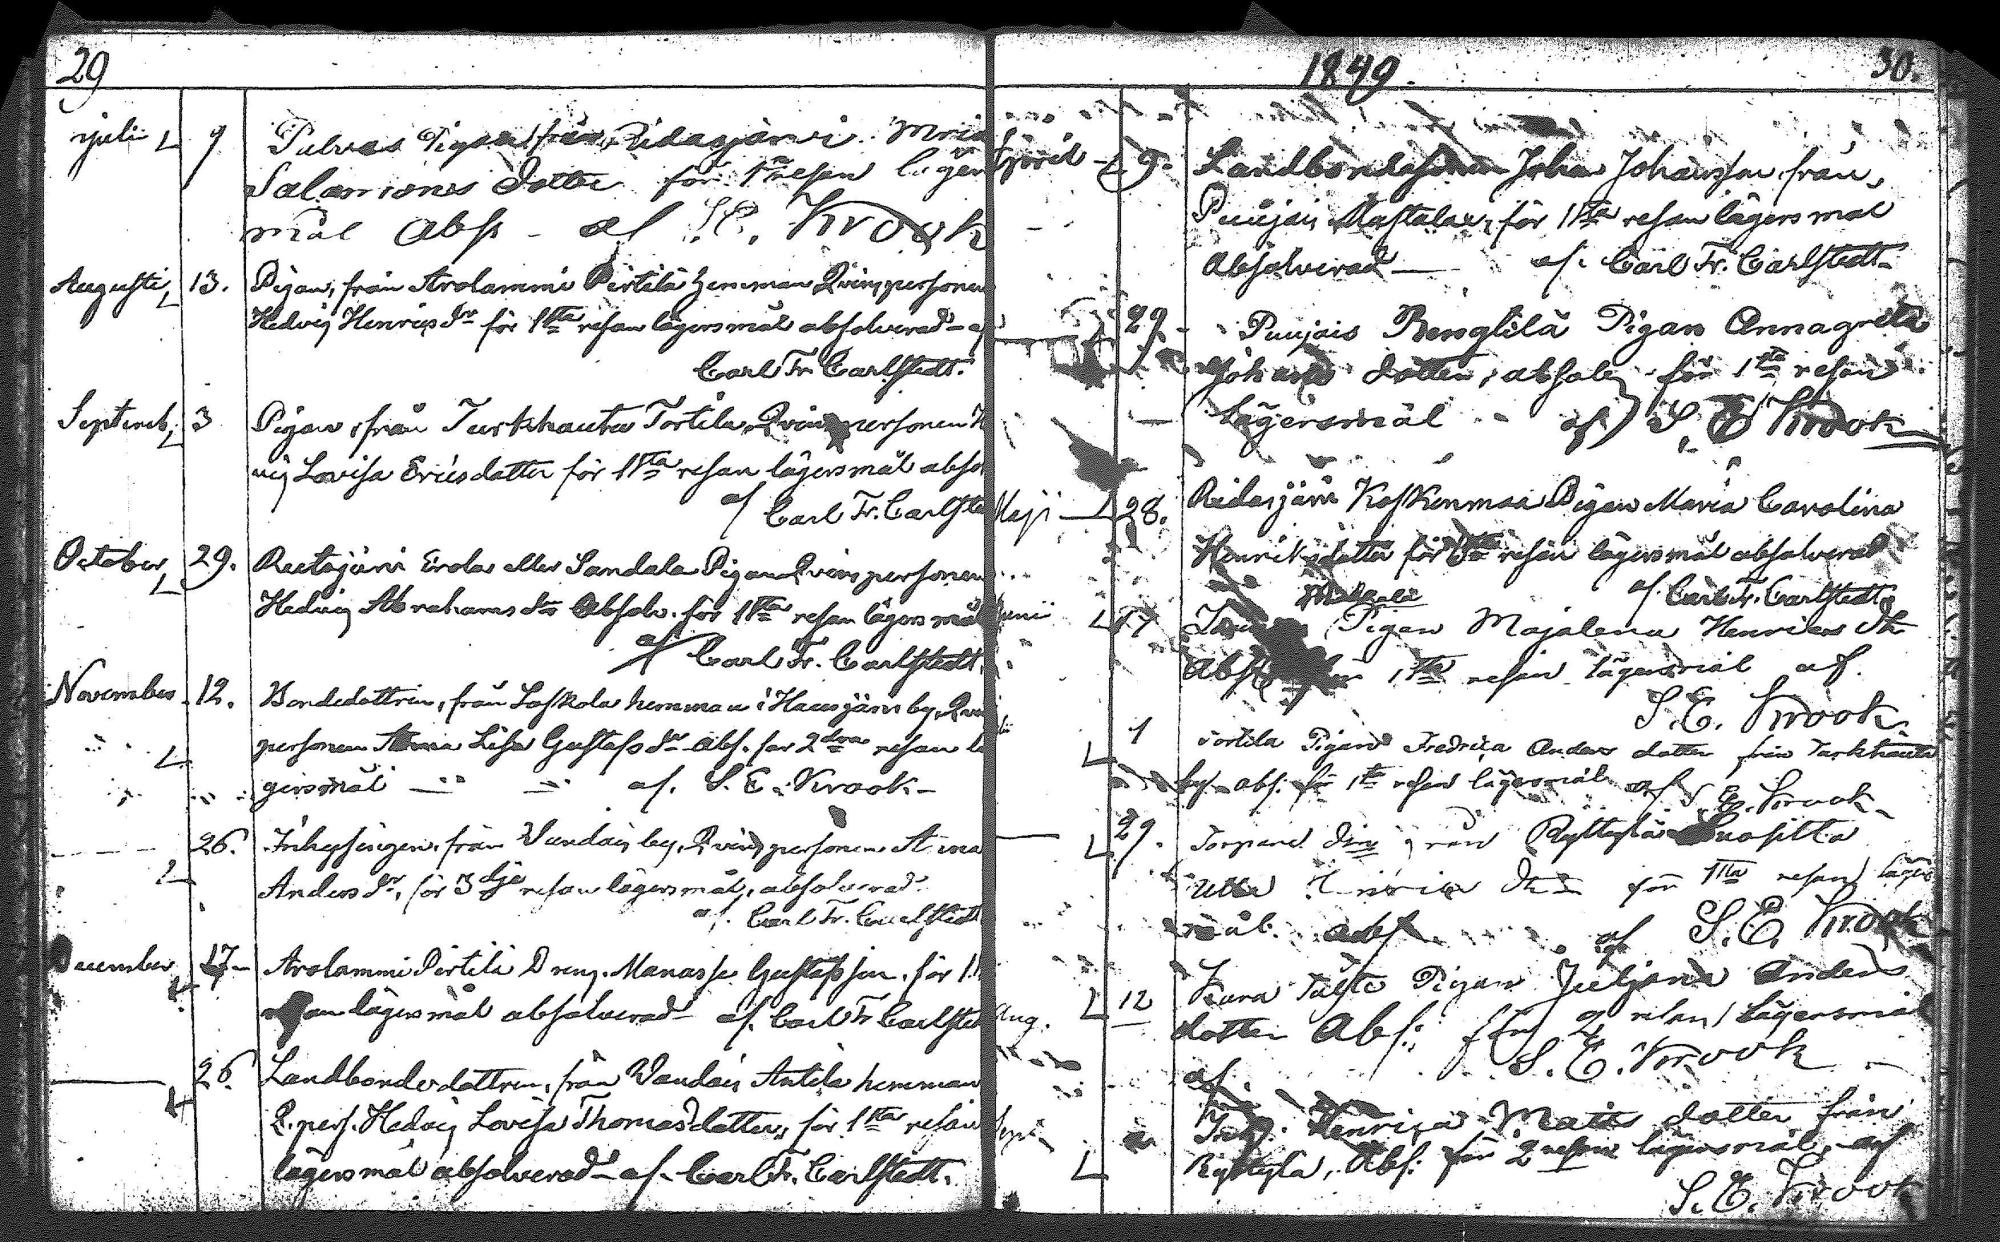 29
Juli 9 Pulvas Pigan från Ridasjärvi Maria
Salamones dotter för 1sta resan läger
mål abs. af S. E. Krook
Augusti 13. Pigan, från Arolammi Pertilä hemman Qvinspersonen
Hedvig Henrics dr för 1sta resan lägersmål absolverad af
Carl Fr. Carlstedt.
Septemb. 3 Pigan, från Turkhauta Tortila, Qvinspersonen H
vig Lovisa Ericsdotter för 1sta resan lägersmål abso
af Carl Fr. Carlste
October 29. Ruutajärvi Erola eller Sandala Pigan Qvinspersonen
Hedvig Abrahams dr Absolv. för 1sta resan lägersmål
af Carl Fr. Carlstedt.
November 12. Bondedottren, från Laskola hemman i Hausjärvi by, Qvins
personen Anna Lisa Gustafs dr abs. för 2dra resan lä
gersmål af. S. E. Krook
26. Inhysingen, från Vandais by, Qvinspersonen Anna
Anders dr, för 3dje resan lägersmål, absolverad
af. Carl Fr. Carlstedt
December 17 Arolammi Pertilä Dreng Manasse Gustafsson, för 1
resan lägersmål absolverad af. Carl Fr Carlsted
26. Landbondedottren, från Vandais Antila hemman
Q.pers. Hedvig Lovisa Thomasdotter, för 1sta resan
lägersmål absolverad af Carl Fr. Carlstedt.
1849.
30.
April 9. Landbondesonen Johan Johansson från
Puujais Mastala, för 1sta resan lägersmål
Absolverad af. Carl Fr. Carlstedt
29 Puujais Bengtilä Pigan Annagreta
Johans dotter, absolv för 1sta resan
Lägersmål af S. E. Krook
Maji 28. Ridasjärvi Koskenmaa Pigan Maria Carolina
Henriksdotter för 1sta resan lägersmål absolverad
af. Carl Fr. Carlstedt
Junii 17 Pigan Majalena Henrics dr
Abs för 1sta resan lägersmål af.
S. E. Krook.
1 Tortila Pigan Fredrica Anders dotter från Turkhauta
by abs: för 1sta resan lägersmål af S. E. Krook
29. Torpare från Ryttylä
Ulla för 1sta resan läger
mål. abs af S. E. Krook
Aug. 12 Kara Pigan Juliana Anders
dotter Abs: för 2 resan Lägersmål
af S. E. Krook
Sept. Inhy. Henrica Matts dotter från
Ryttylä, Abs: för 2 resan lägersmål, af
S. E. Krook